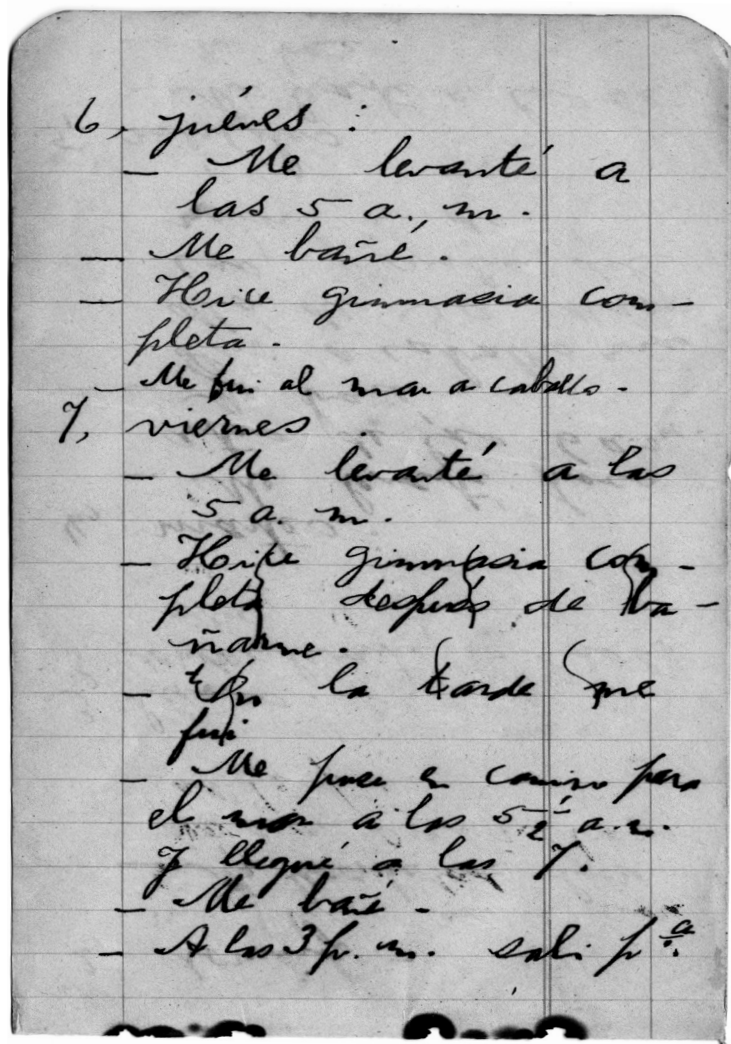 6, juéves :
— Me levanté a
las 5 a., m.
— Me bañé.
— Hice gimnasia com-
pleta.
— Me fuí al mar a caballo.
7, viernes.
— Me levanté a las
5 a. m.
— Hice gimnasia com-
pleta después de ba-
ñarme.
— En la tarde me
fuí
— Me puse en camino para
el mar a las 5 1/2 a. m.
y llegué a las 7.
— Me bañé.
— A las 3 p. m. salí pª.